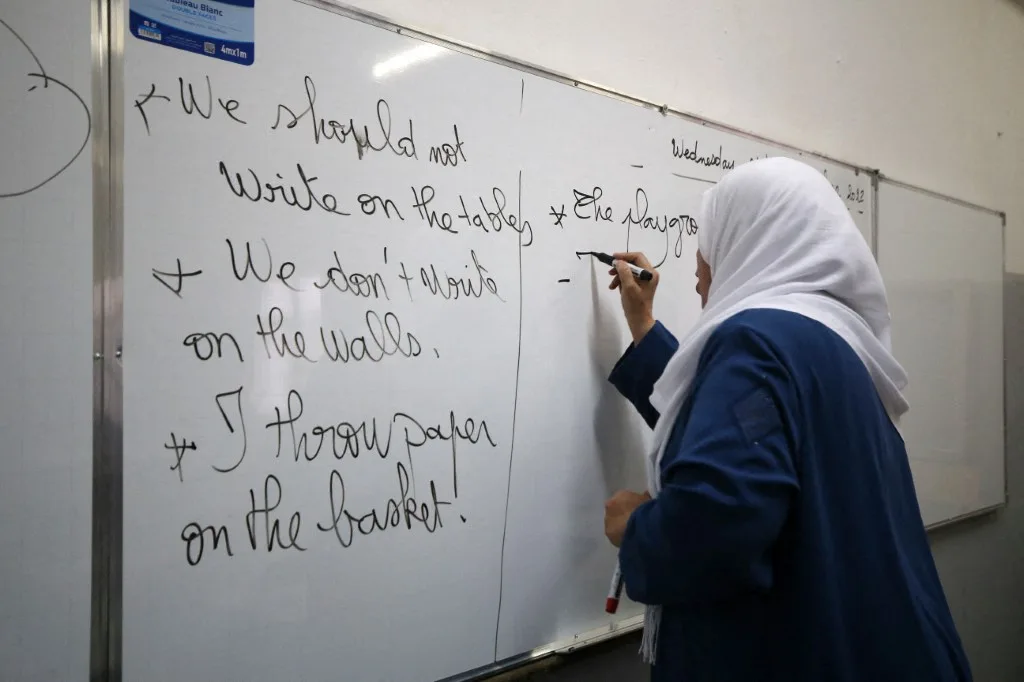 Tableau Blanc
DOUBLE FACES
4mx1m
We should not
write on the tables
We don't write
on the walls.
I throw paper
on the basket.
Wednesday
The playgro